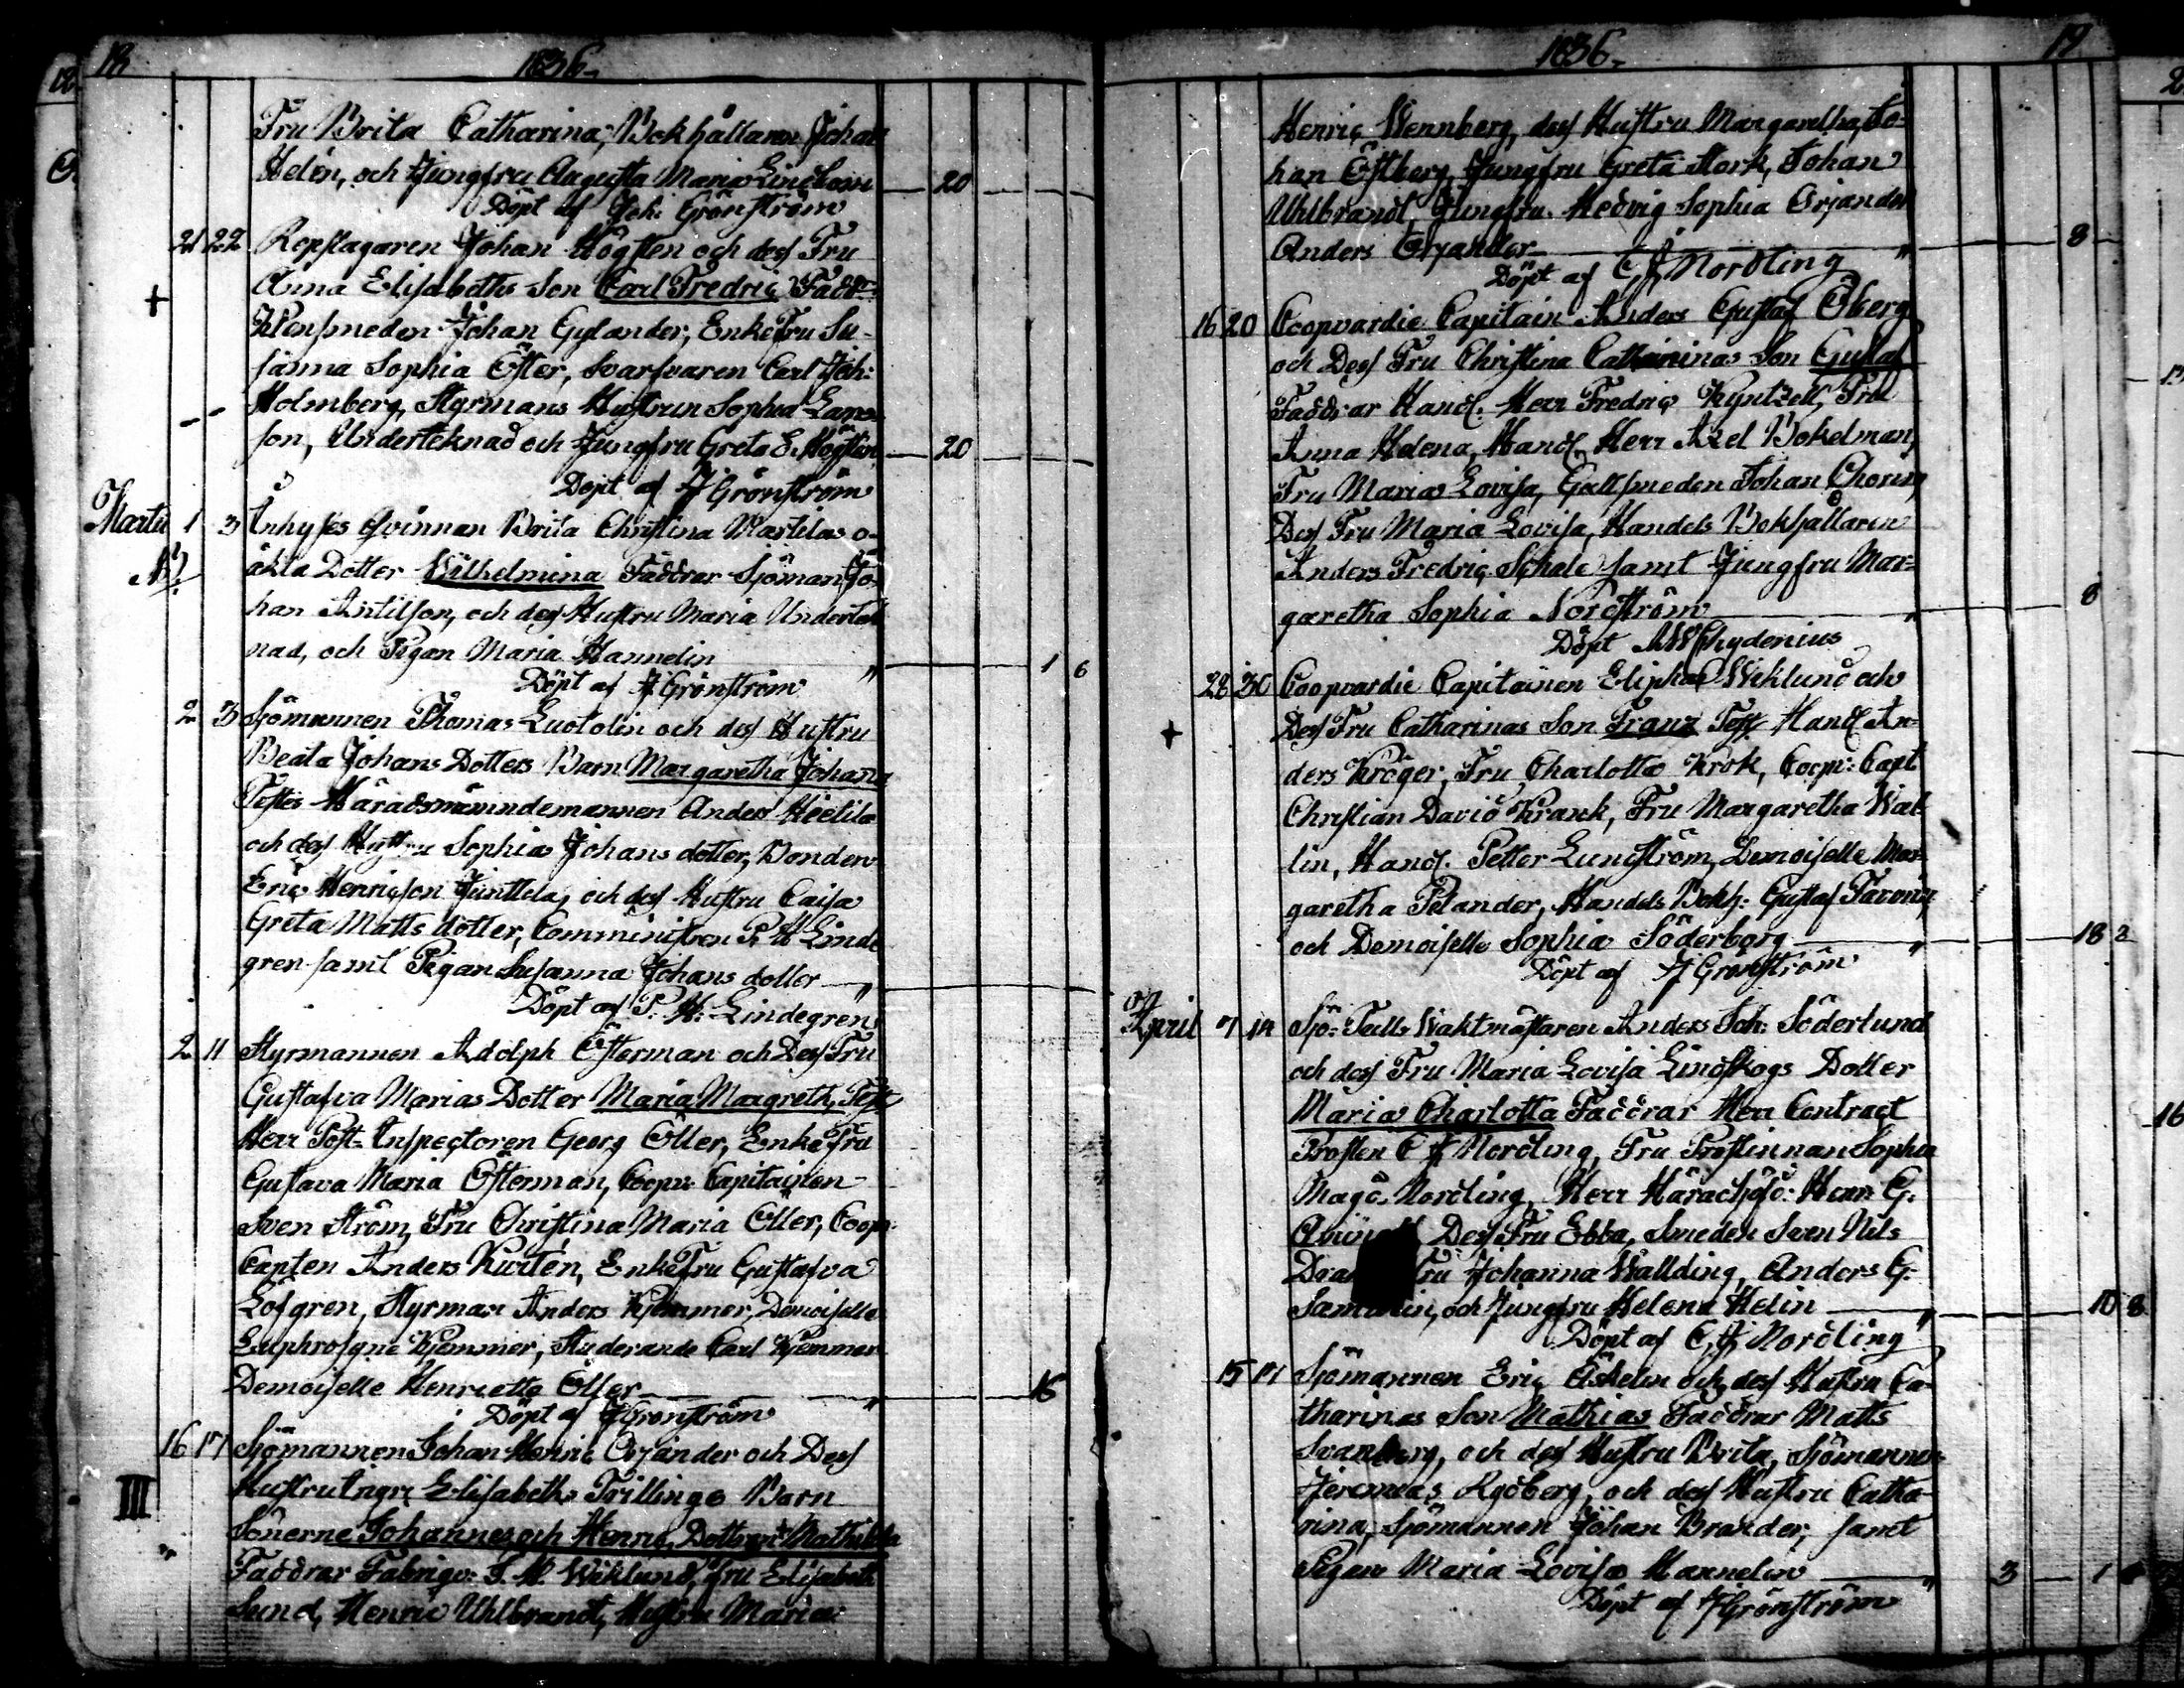 18 1836.
Fru Brita Catharina, Bokhållaren Johan
Helén, och Jungfru Augusta Maria Lindbom — 20
Döpt af Joh: Grönström
21 22 Repslagaren Johan Högsten och dess Fru
Anna Elisabeths Son Carl Fredric, Fadd=
+
Johan Gylander, Enkefru Su-
sanna Sophia Öster, Svarfvaren Carl Joh:
Holmberg, Styrmans Hustrun Sophia
son, Underteknad och Jungfru Greta E. Högsten — 20
Döpt af J Grönström
Martii 1 3 Inhyses Qvinnan Brita Christina Martilas o-
NB. äkta Dotter Wilhelmina Faddrar Sjöman Jo-
han Antilson, och dess Hustru Maria Undertek
nad, och Pigan Maria Hannelin " 1 6
Döpt af J Grönström
2 3 Sjömannen Thomas Luotolin och dess Hustru
Beata Johans Dotters Barn Margaretha Johana
Testes Häradsnämndemannen Anders Hietila
och dess Hustru Sophia Johans dotter, Bonden
Eric Henricson Junttila, och dess Hustru Caisa
Greta Matts dotter, Comministren P. H Linde
gren samt Pigan Susanna Johans dotter — "
Döpt af P. H. Lindegren
2 11 Styrmannen Adolph Österman och Dess Fru
Gustafva Marias Dotter Maria Margreth, Test
Herr Post-Inspectoren Georg Öller, Enkefru
Gustava Maria Österman, Coopv: Capitainen
Sven Ström, Fru Christina Maria Öller, Coop:
Capten Anders Kurtén, Enkefru Gustafva
Löfgren, Styrman Anders Kjemmer, Demoiselle
Euphrosyne Kjemmer, Studerande Carl Kjemmer
Demoiselle Henriette Öller — " 16
Döpt af J Grönström
16 17 Sjömannen Johan Henric Orjander och Dess
III Hustru Elisabeths Trillinge Barn
Sönerne Johannes och Henric, Dottern Mathilda
Faddrar Fabriqv: J. M. Wiklund, fru Elisabeth
Lund, Henric Uhlbrandt, Hustru Maria
1836. 19
Henric Wennberg, dess Hustru Margaretha, Jo-
han Östberg, Jungfru Greta Stork, Johan
Uhlbrandt, Jungfru Hedvig Sophia Orjander
Anders Orjander — " 8
Döpt af C J Nordling
16 20 Coopvardie Capitain Anders Gustaf Öberg
och Dess Fru Christina Catharinas Son Gustaf
Faddrar Handl. Herr Fredric Kyntzell, Fru
Anna Helena, Handl. Herr Axel Bokelman,
Fru Maria Lovisa, Gullsmeden Johan
Dess Fru Maria Lovisa, Handels Bokhållaren
Anders Fredric Schale samt Jungfru Mar=
garetha Sophia Nordström " 8
Döpt AW Chydenius
28 30 Coopvardie Capitainen Eliphas Wiklund och
+ Dess Fru Catharinas Son Franz Test Handl An-
ders Kröger, Fru Charlotta Krok, Coopv: Capt
Christian David Krank, Fru Margaretha Wal-
lin, Handl. Petter Lundström, Demoiselle Mar-
garetha Pelander, Handels Bokh: Gustaf
och Demoiselle Sophia Söderborg — " 18 2
Döpt af J Grönström
April 7 14 Sjö-Tulls Waktmästaren Anders Joh: Söderlund
och dess Fru Maria Lovisa Lindskogs Dotter
Maria Charlotta Faddrar Herr Contract
Prosten C J Nordling, Fru Prostinnan Sophia
Magd. Nordling, Herr Häradshöfd: Herr G.
Dess Fru Ebba, Smeden Sven Nils
Fru Johanna Wallding, Anders G.
och Jungfru Helena Helin — " 10 8
Döpt af C J Nordling
15 17 Sjömannen Eric Åshelin och dess Hustru Ca-
tharinas Son Mathias Faddrar Matts
Svanberg, och dess Hustru Brita, Sjömannen
Jeremias Rydberg, och dess Hustru Catha-
rina, Sjömannen Johan Brander, samt
Pigan Maria Lovisa Hannelin — " 3 — 1
Döpt af J Grönström